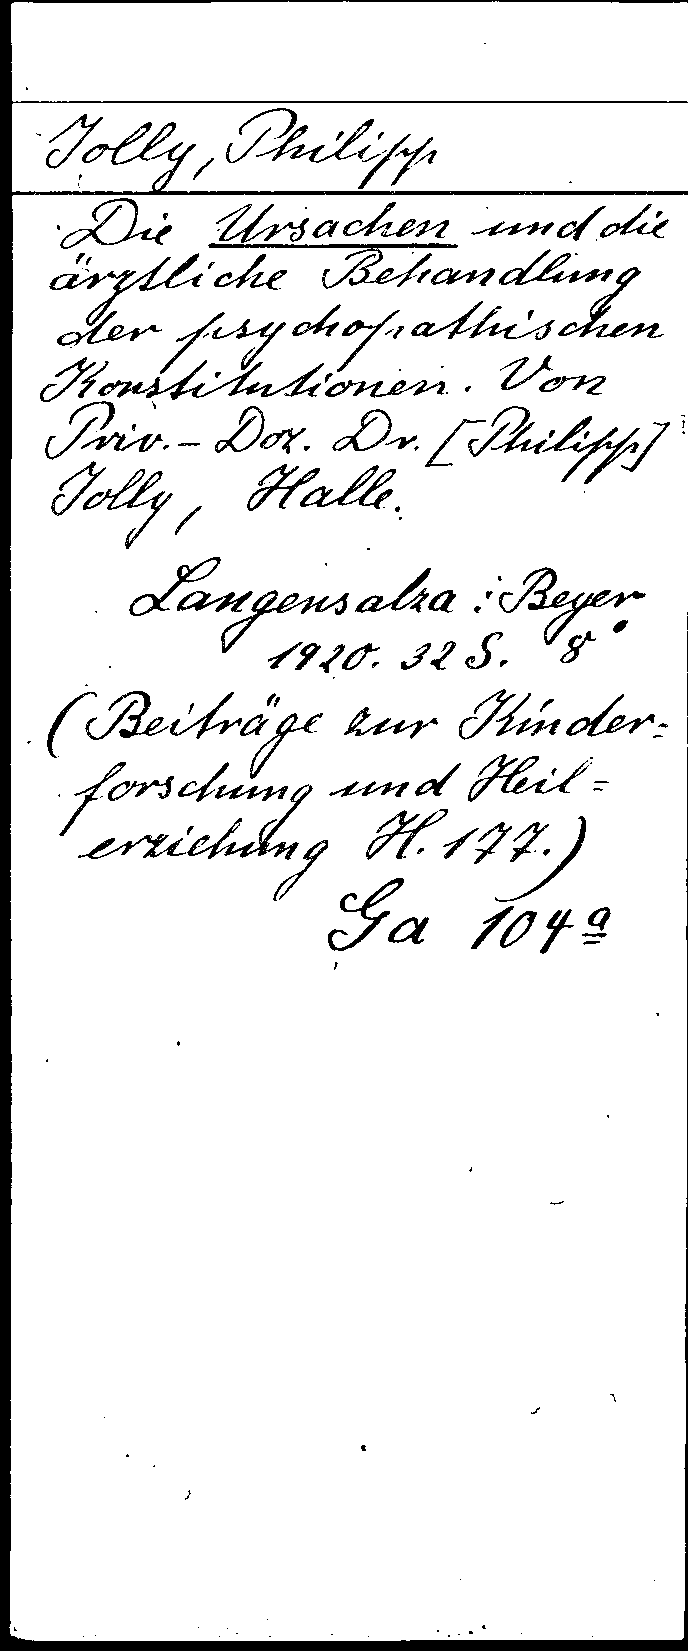 Jolly, Philipp
Die Ursachen und die
ärztliche Behandlung
der psychopathischen
Konstitutionen. Von
Priv.-Doz. Dr. [Philipp]
Jolly, Halle.
Langensalza: Beyer
1920. 32 S. 8°
(Beiträge zur Kinder=
forschung und Heil=
erziehung H. 177.)
Ga 104 a